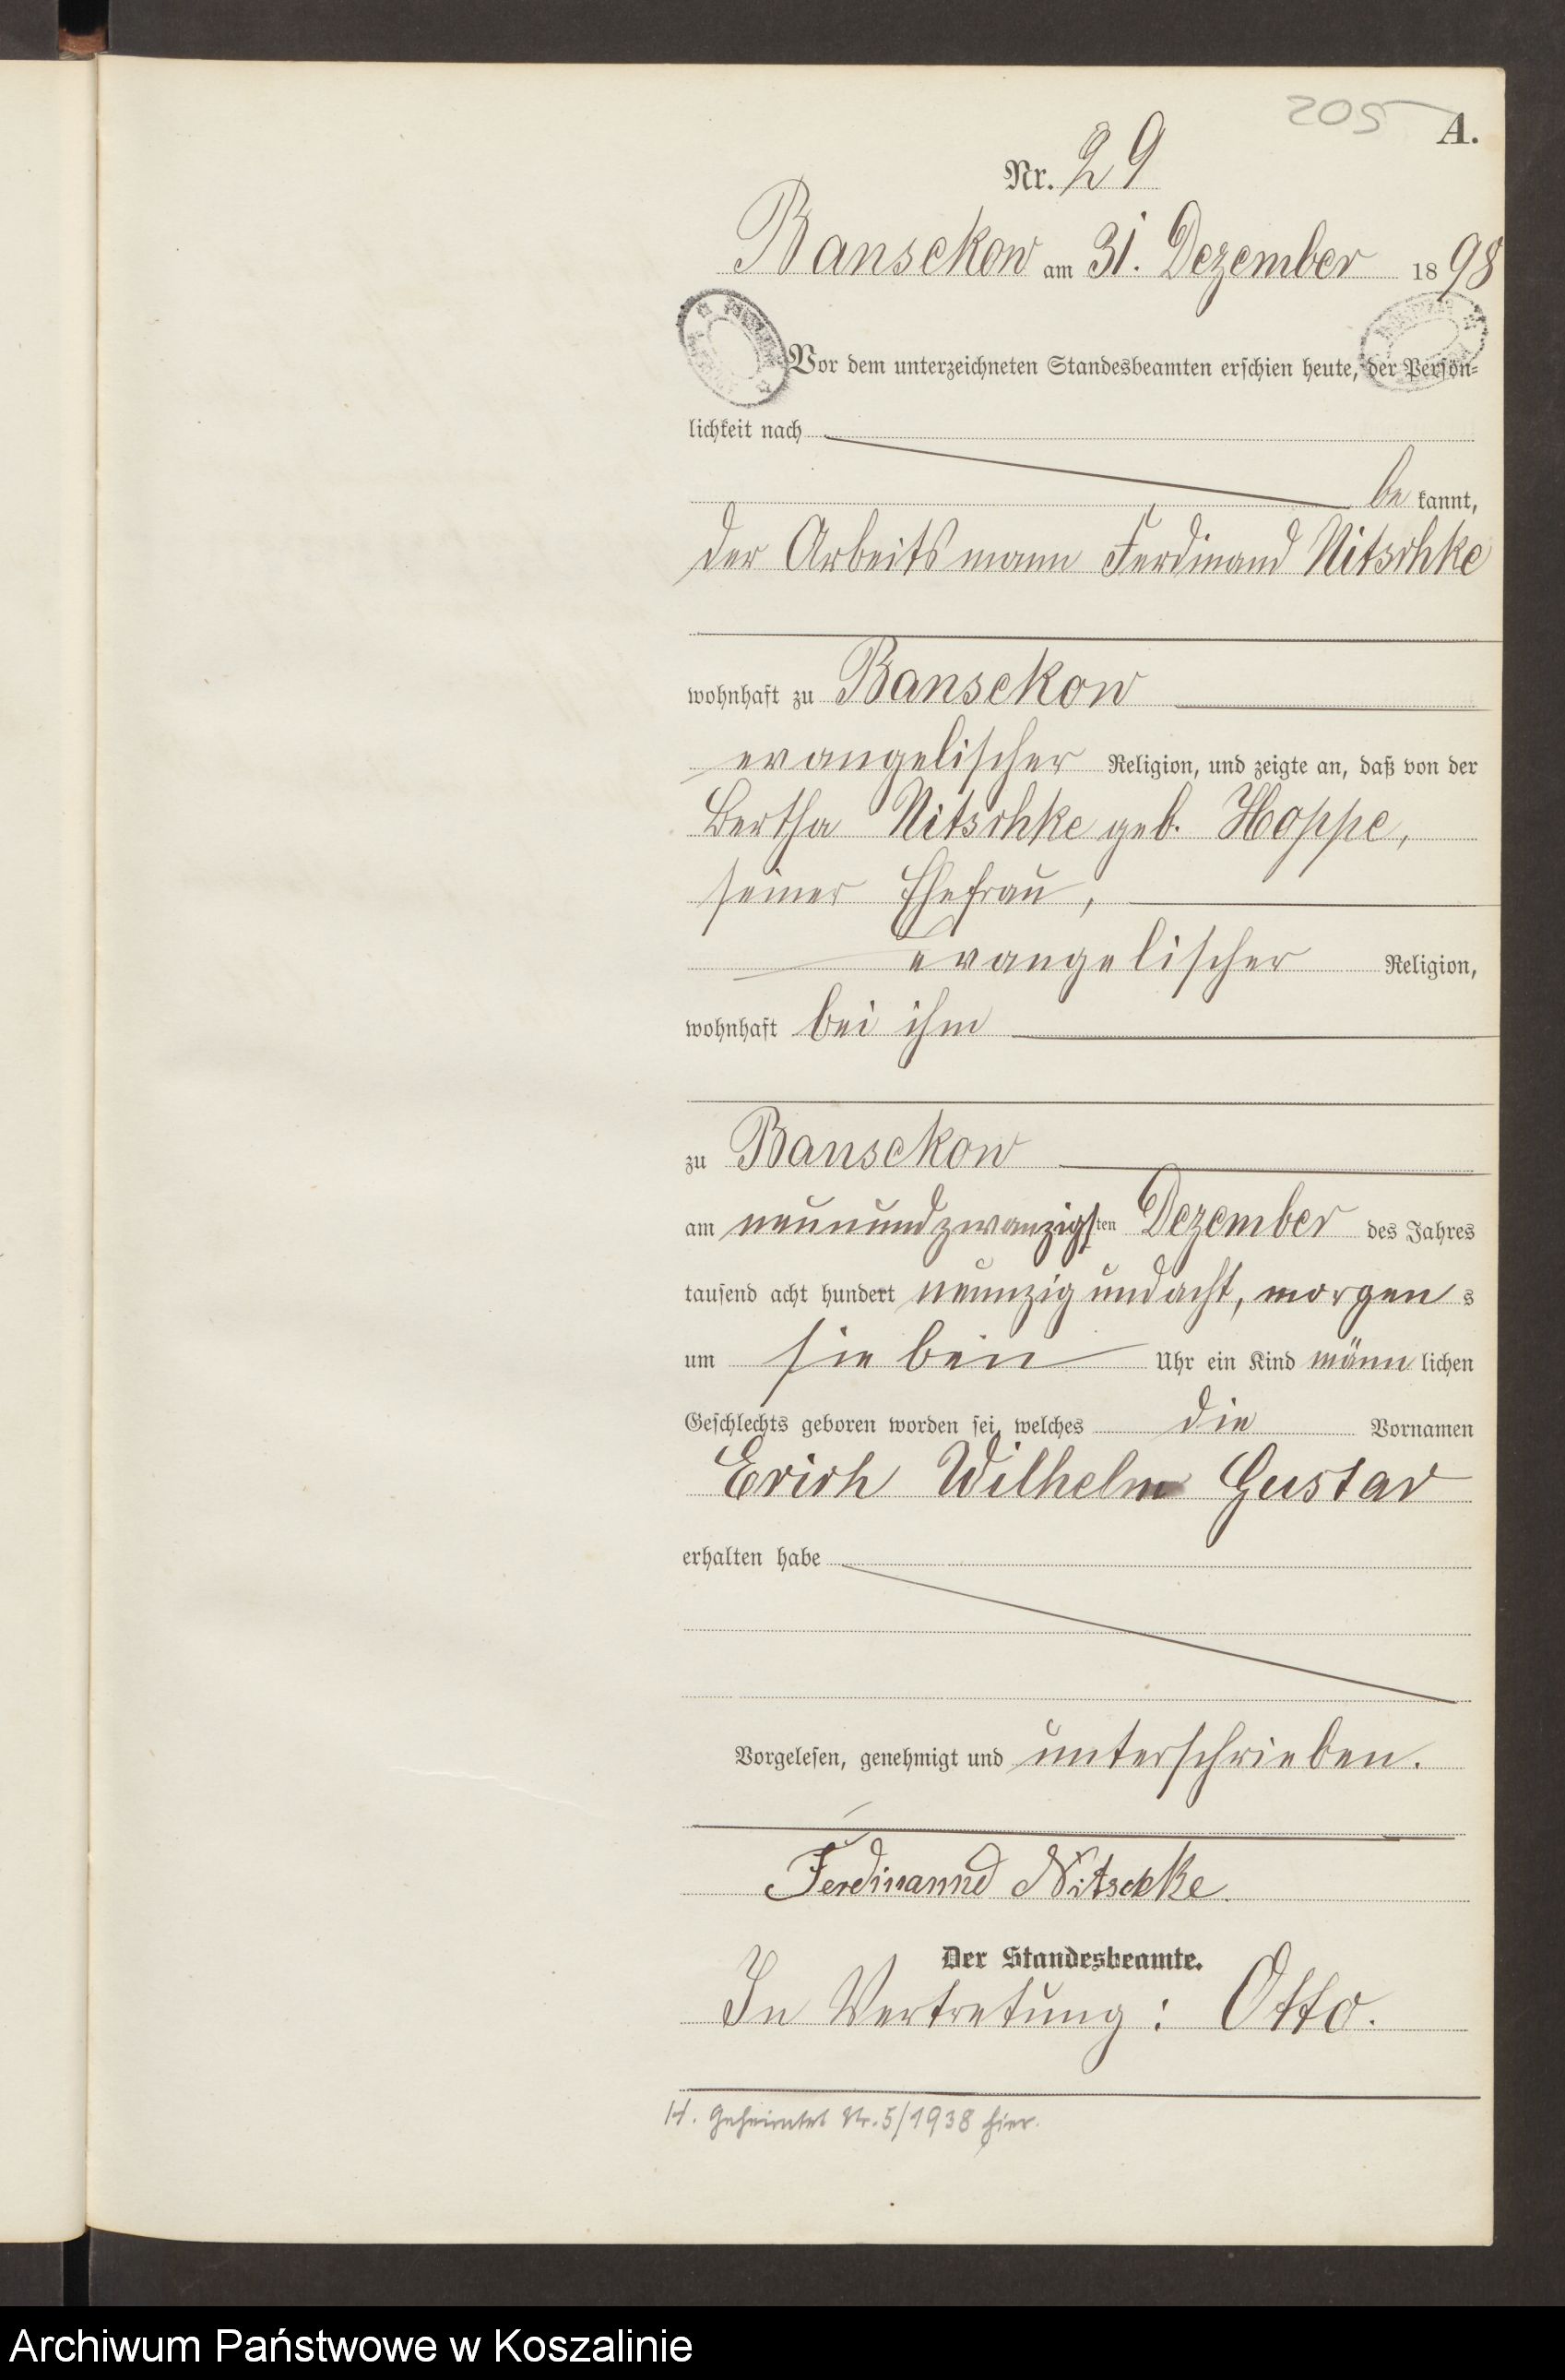 205
A.
Nr. 29
Bansekow am 31. Dezember 1898
Vor dem unterzeichneten Standesbeamten erschien heute, der Persön-
lichkeit nach
be kannt,
der Arbeitsmann Ferdinand Nitschke
wohnhaft zu Bansekow
evangelischer Religion, und zeigte an, daß von der
Bertha Nitschke geb. Hoppe,
seiner Ehefrau,
evangelischer Religion,
wohnhaft bei ihm
zu Bansekow
am neunundzwanzigsten Dezember des Jahres
tausend acht hundert neunzig und acht, morgens
um sieben Uhr ein Kind männlichen
Geschlechts geboren worden sei, welches die Vornamen
Erich Wilhelm Gustav
erhalten habe
Vorgelesen, genehmigt und unterschrieben.
Ferdinannd Nitschke.
Der Standesbeamte.
In Vertretung: Otto.
H. Geheiratet Nr. 5/1938 hier.
Archiwum Państwowe w Koszalinie